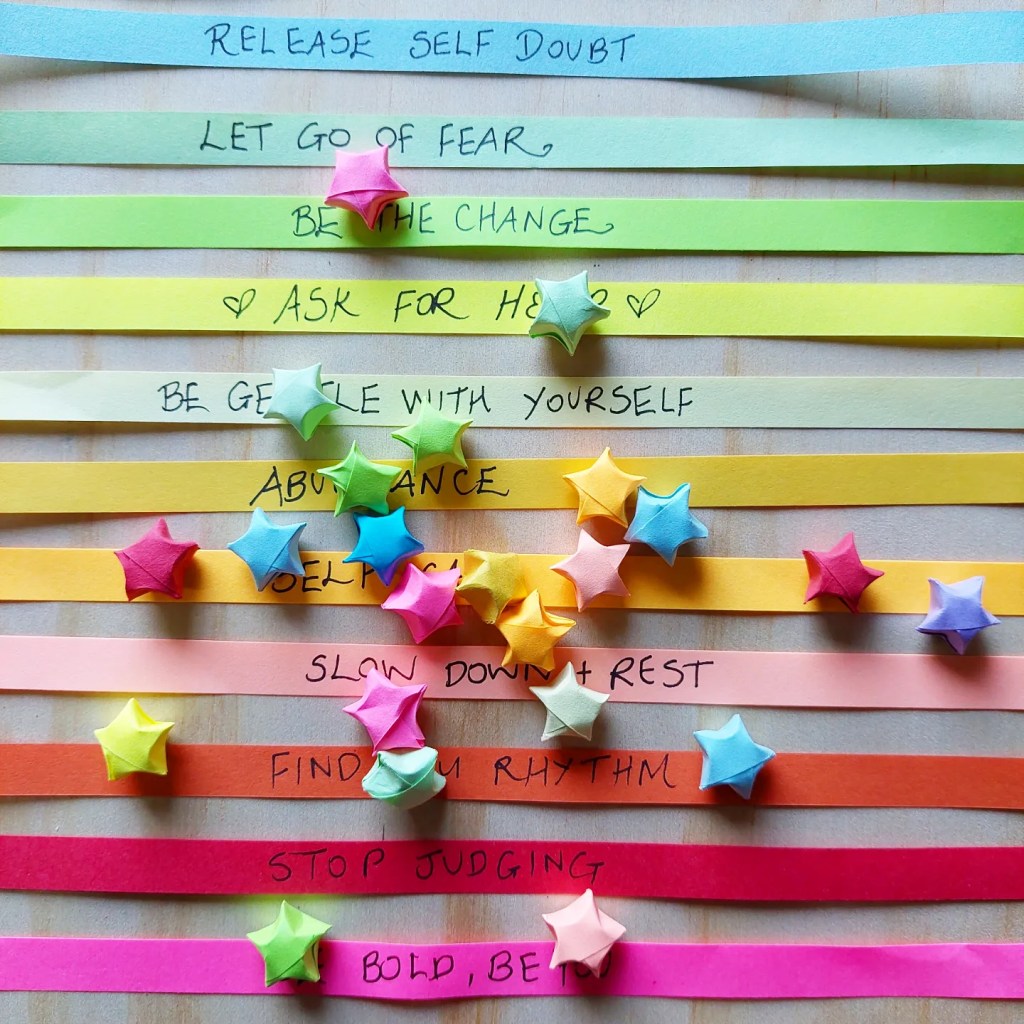 RELEASE SELF DOUBT
LET GO OF FEAR
BE THE CHANGE
♡ ASK FOR HELP ♡
BE GENTLE WITH YOURSELF
ABUNDANCE
SELF
SLOW DOWN + REST
FIND RHYTHM
STOP JUDGING
BE BOLD, BE YOU